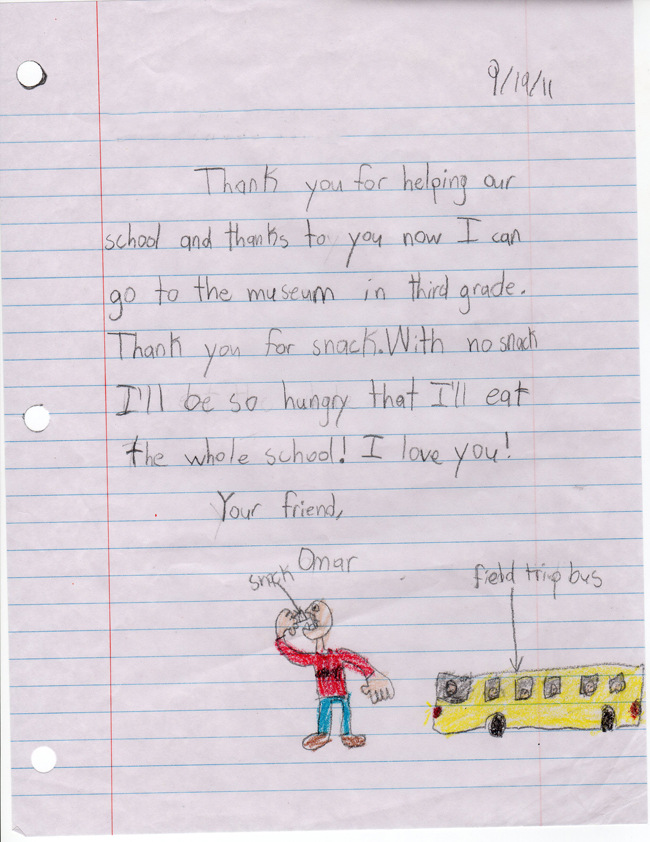 9/19/11
Thank you for helping our
school and thanks to you now I can
go to the museum in third grade.
Thank you for snack. With no snack
I'll be so hungry that I'll eat
the whole school! I love you!
Your friend,
Omar
snack
field trip bus